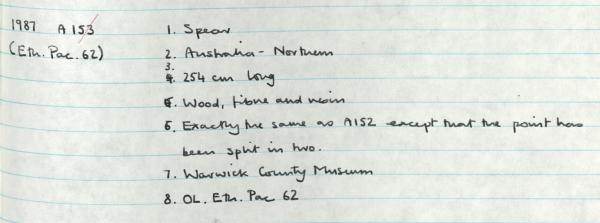 1987 A153 1. Spear
(Eth. Pac. 62) 2. Australia - Northern
3.
4. 254 cm long
5. Wood, fibre and resin
6. Exactly the same as A152 except that the point has
been split in two.
7. Warwick County Museum
8. OL. Eth. Pac 62